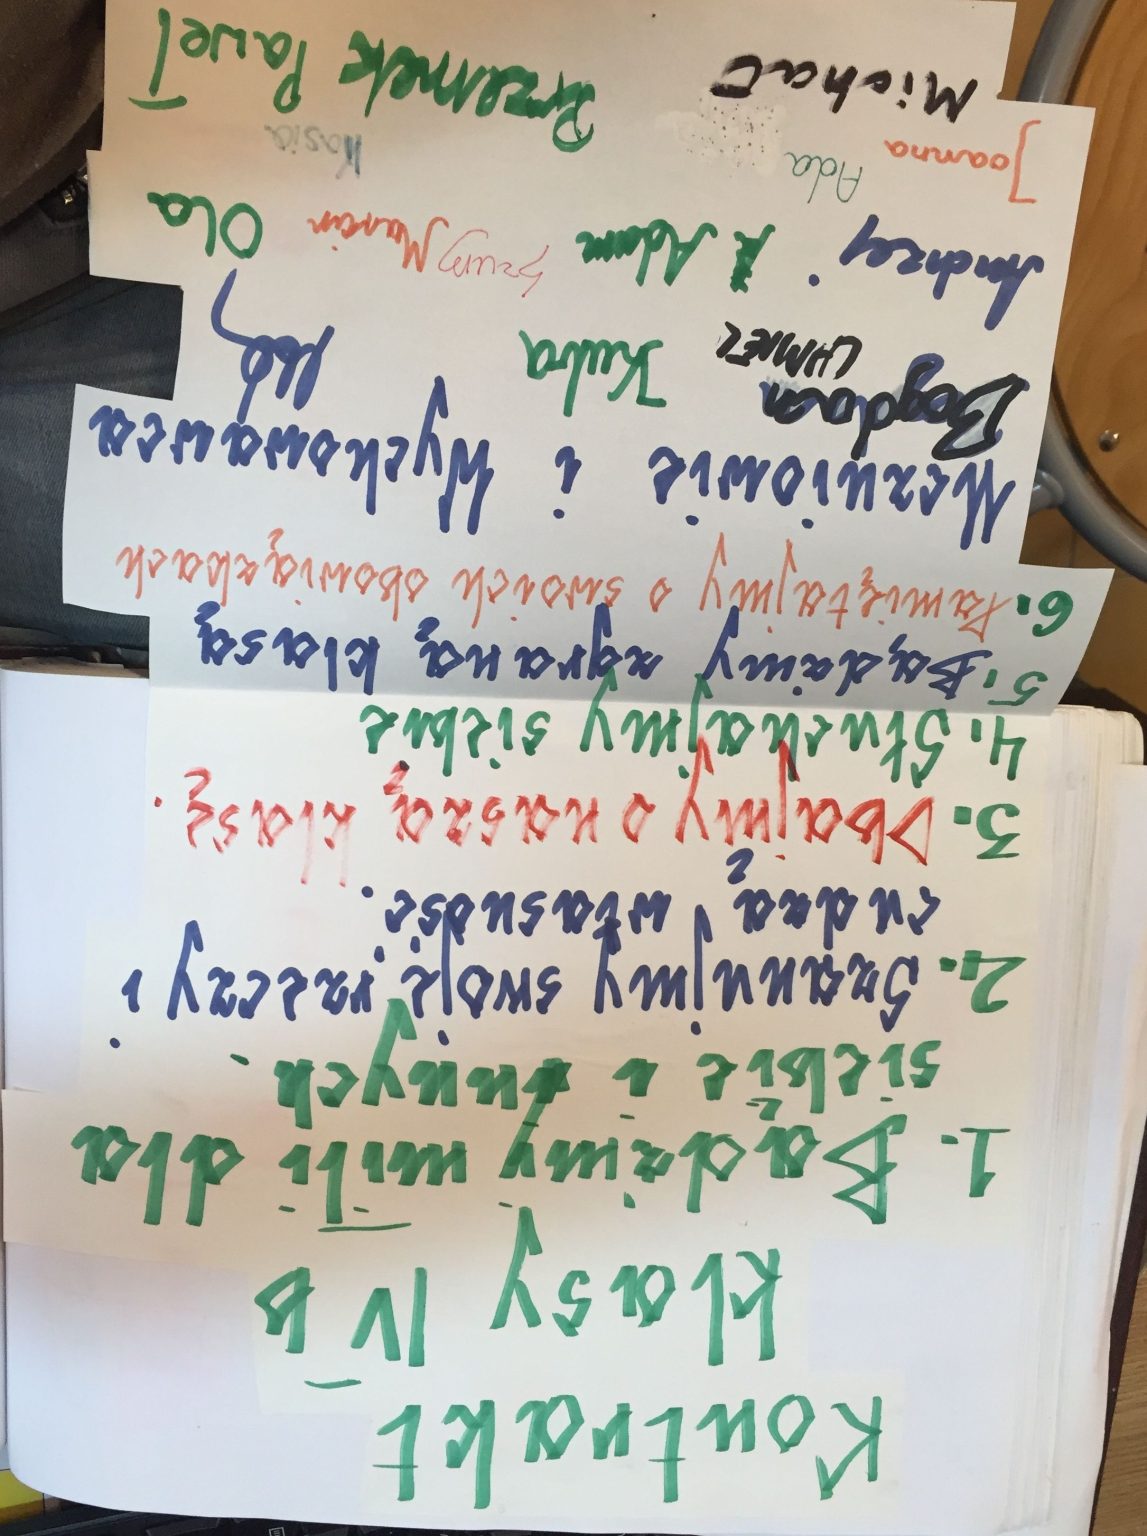 Kontrakt
klasy IV b
1. Bądźmy mili dla
siebie i innych.
2. Szanujmy swoje rzeczy i
cudzą własność.
3. Dbajmy o naszą klasę.
4. Słuchajmy siebie
5. Bądźmy zgraną klasą
6. Pamiętajmy o swoich obowiązkach
Uczniowie i Wychowawca
Bogdan CHMIEL Kuba
Andrzej Adam Szung Marcin Ola
Joanna Ada Kasia
Michał Przemek Paweł